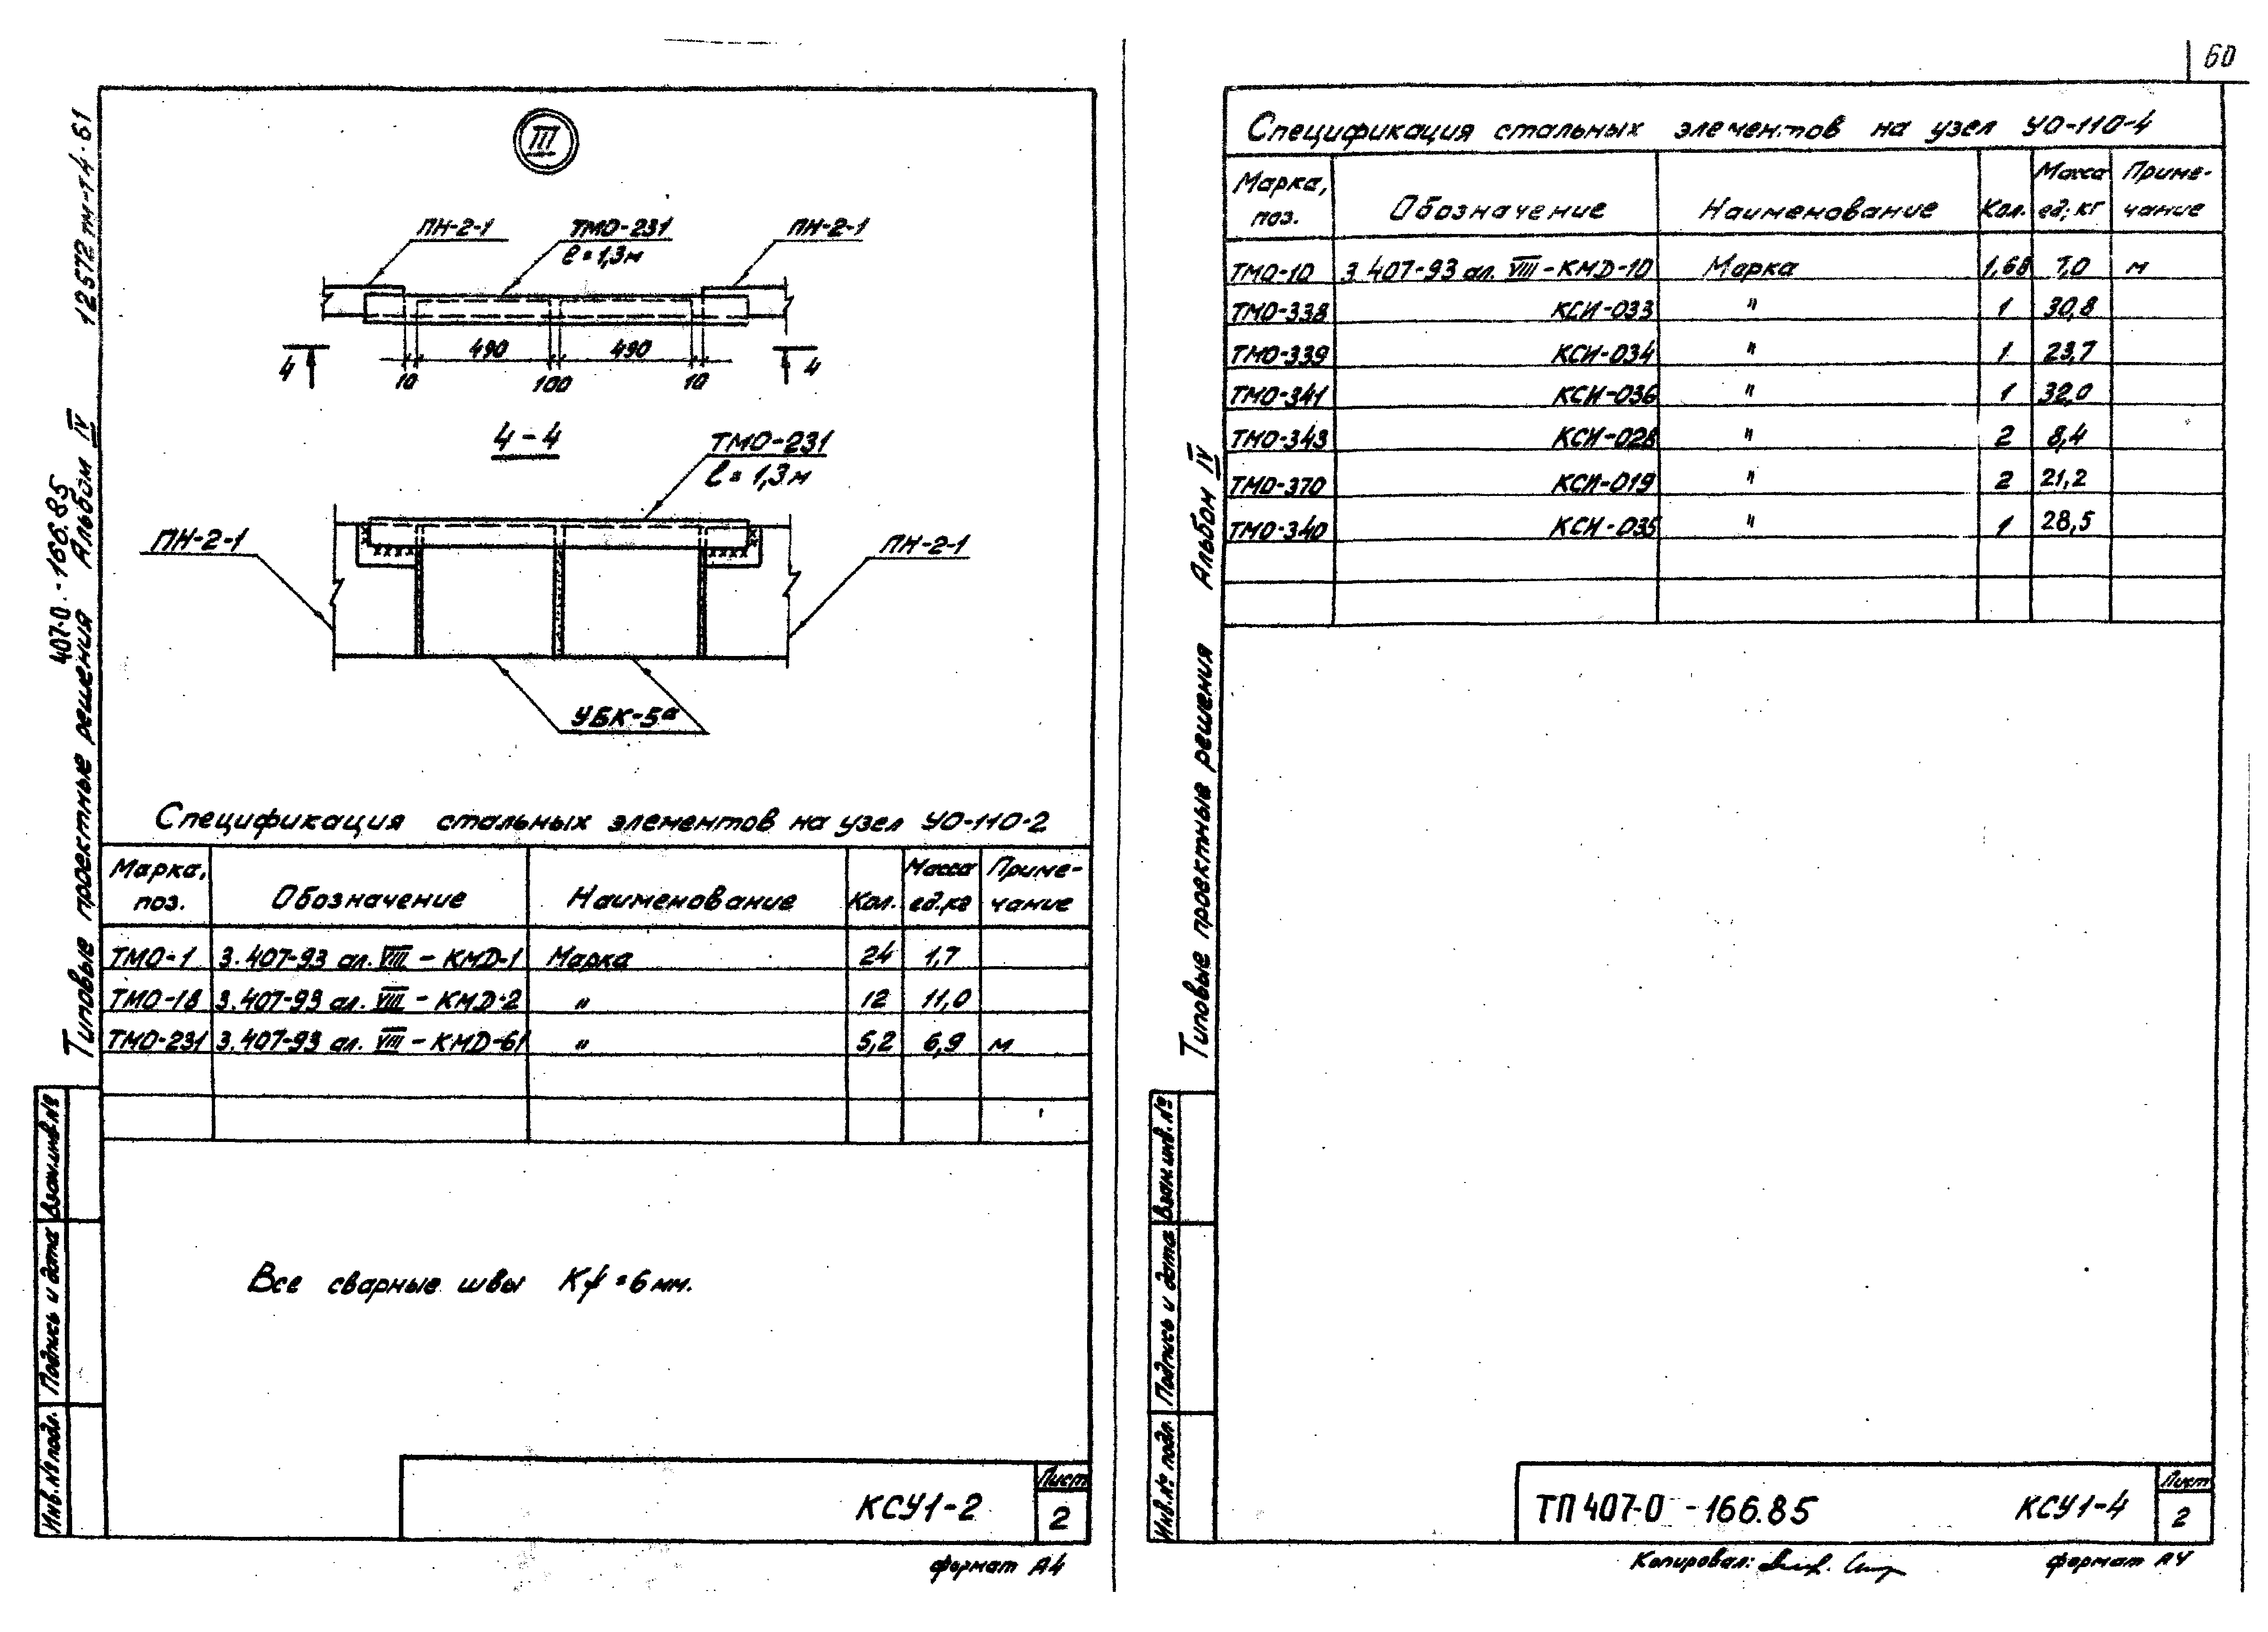 60
12572 тм-т4-61
407-0-166.85
Типовые проектные решения Альбом IV
III
ПН-2-1
ТМО-231
ℓ=1,3м
ПН-2-1
4
490
490
4
10
100
10
4-4
ТМО-231
ℓ=1,3м
ПН-2-1
ПН-2-1
УБК-5а
Спецификация стальных элементов на узел УО-110-2
Марка, поз. Обозначение Наименование Кол. Масса ед.кг Примечание
ТМО-1 3.407-93 ал. VIII - КМД-1 Марка 24 1,7
ТМО-18 3.407-93 ал. VIII - КМД-2 " 12 11,0
ТМО-231 3.407-93 ал. VIII - КМД-61 " 5,2 6,9 м
Все сварные швы Кf=6мм.
Взам.инв.№
Подпись и дата
Инв.№ подл.
КСУ1-2
Лист
2
формат А4
Типовые проектные решения Альбом IV
Спецификация стальных элементов на узел УО-110-4
Марка, поз. Обозначение Наименование Кол. Масса ед; кг Примечание
ТМО-10 3.407-93 ал. VIII - КМД-10 Марка 1,68 7,0 м
ТМО-338 КСИ-033 " 1 30,8
ТМО-339 КСИ-034 " 1 23,7
ТМО-341 КСИ-036 " 1 32,0
ТМО-343 КСИ-028 " 2 8,4
ТМО-370 КСИ-019 " 2 21,2
ТМО-340 КСИ-035 " 1 28,5
Взам.инв.№
Подпись и дата
Инв.№ подл.
ТП 407-0 -166.85 КСУ1-4
Лист
2
Копировал:
формат А4